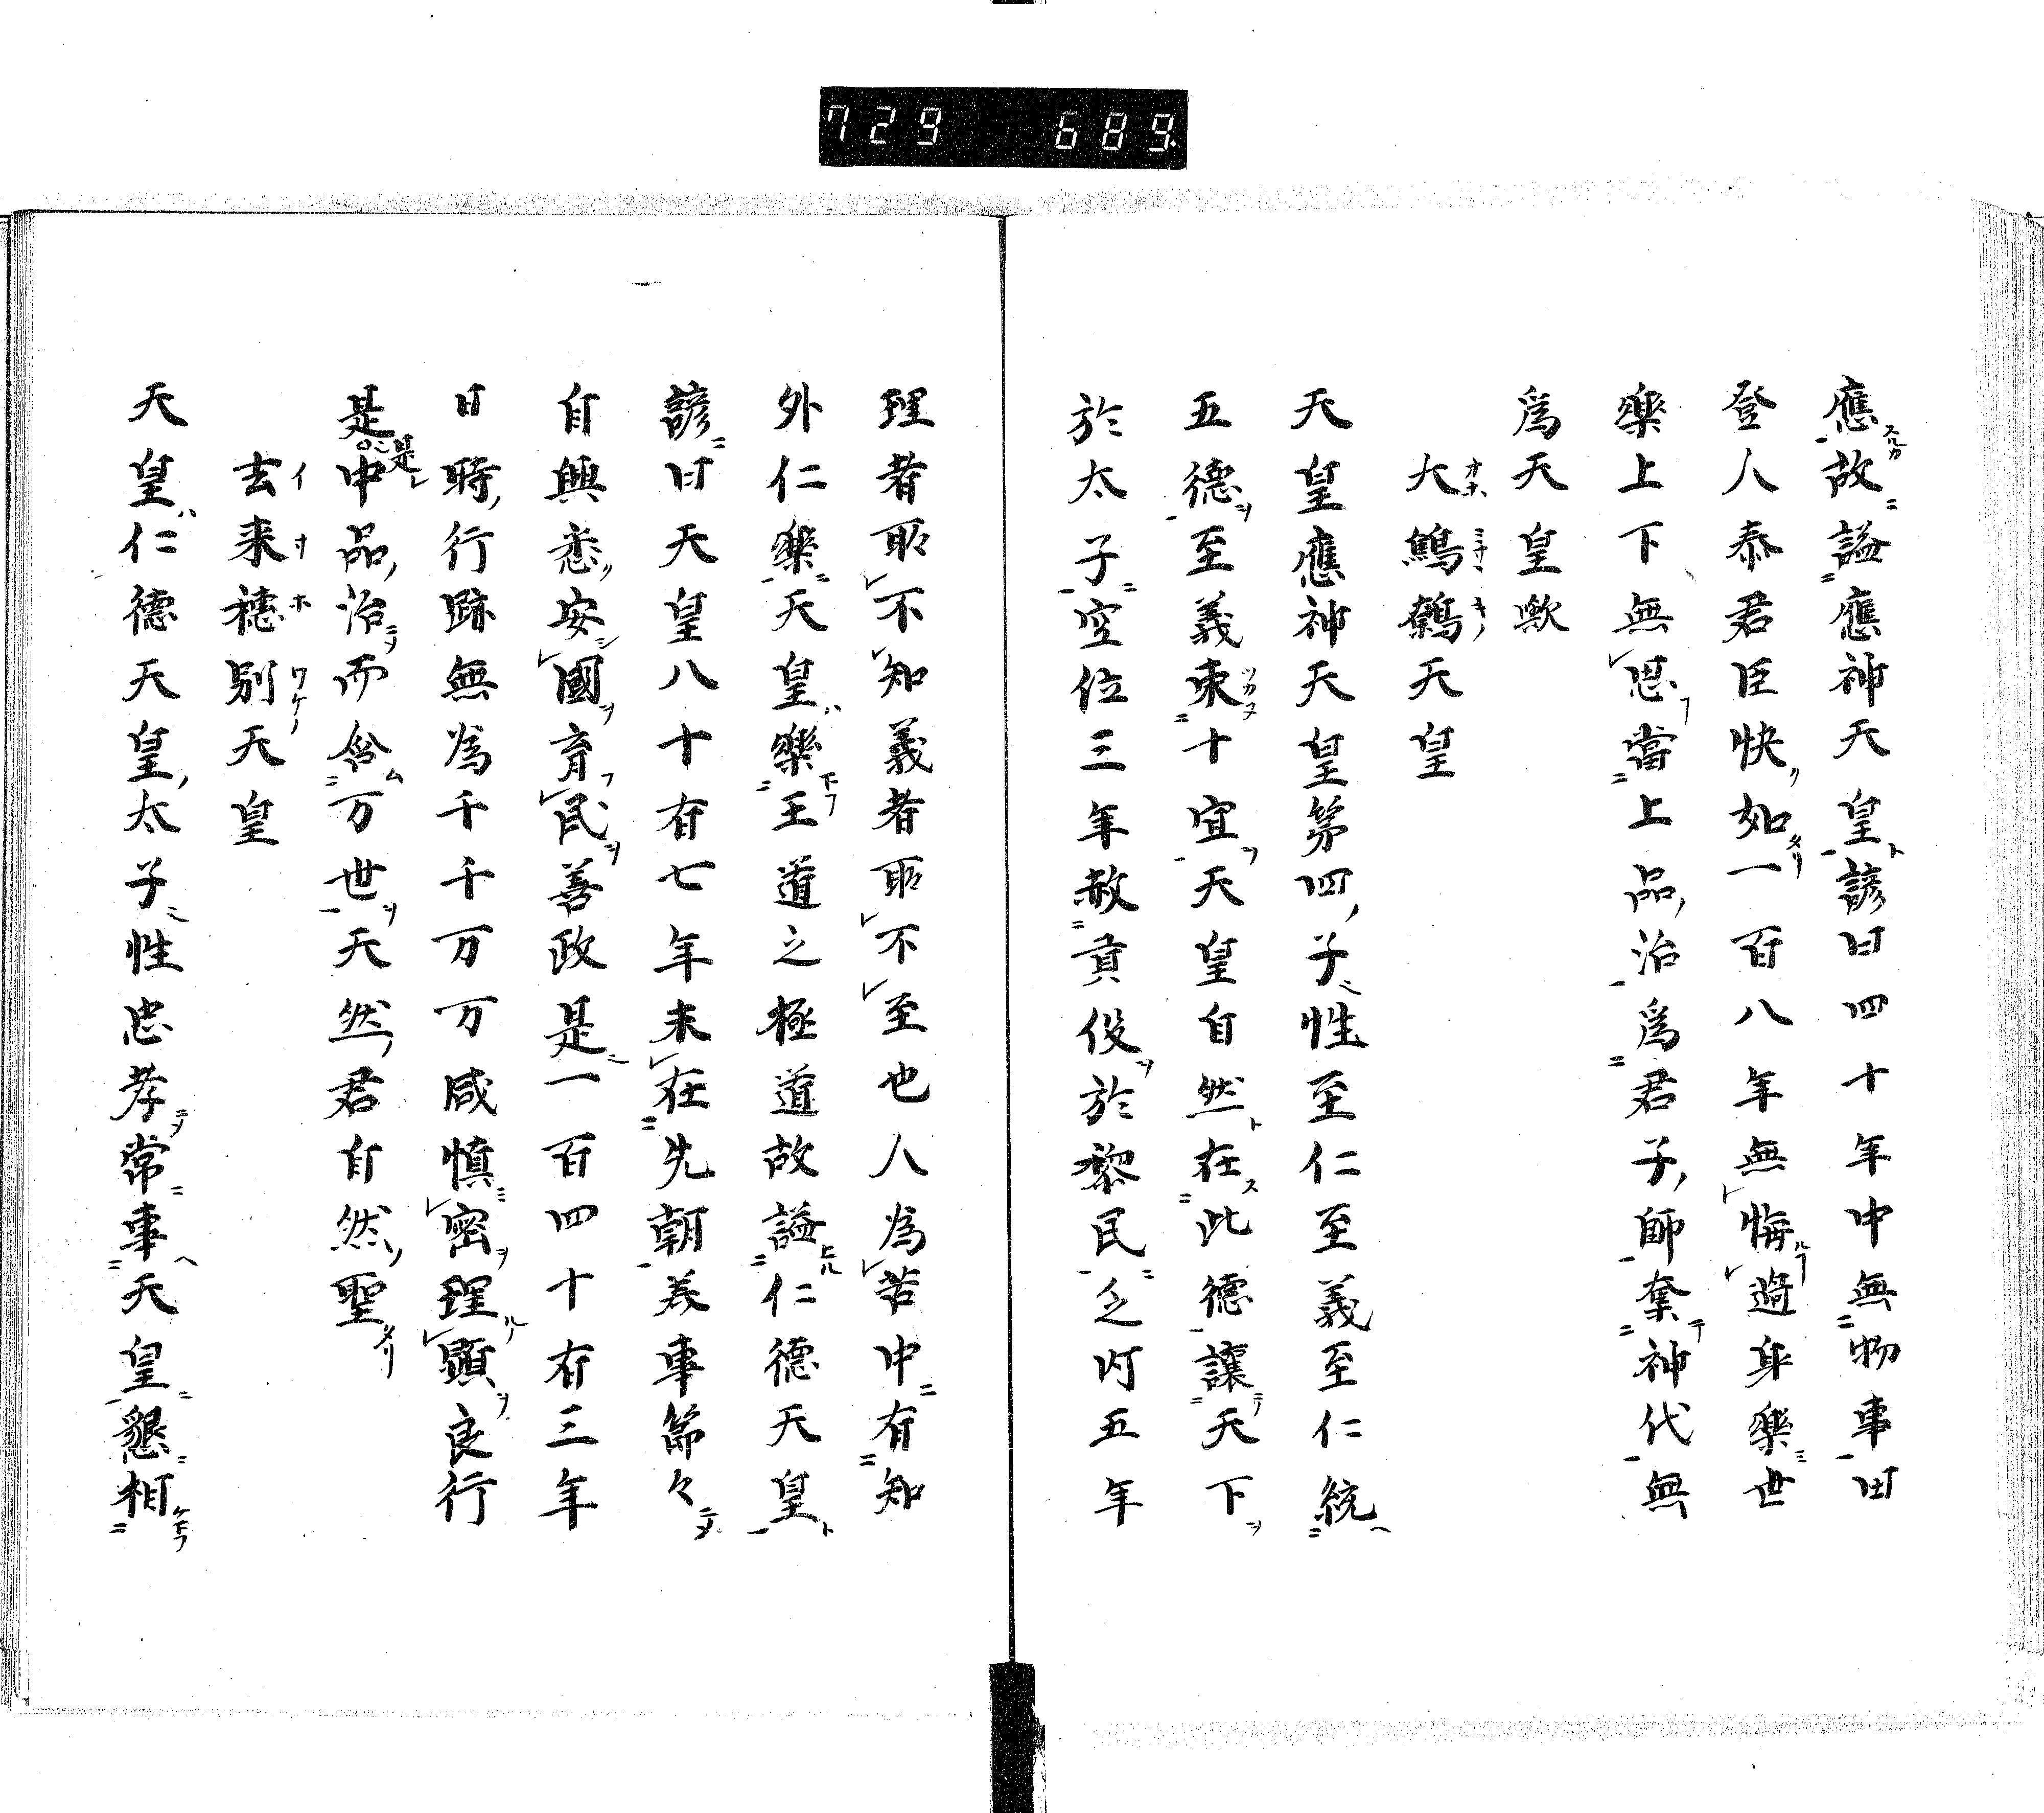 729 689
應故謚應神天皇諺曰四十年中無物事田
登人泰君臣快如一百八年無悔造身樂世
樂上下無思當上品治爲君子師奪神代無
爲天皇歟
大鷦鷯天皇
天皇應神天皇第四子性至仁至義至仁統
五德至義束十宜天皇自然在此德讓天下
於太子空位三年赦貢役於黎民之内五年
理者耶不知義者耶不至也人爲苦中有知
外仁樂天皇樂王道之極道故謚仁德天皇
諺曰天皇八十有七年未在先朝善事節々
自興悉安國育民善政是一百四十有三年
日時行跡無為千千万万咸慎密理顕良行
是中品治而含万世天然君自然聖
去来穗別天皇
天皇仁德天皇太子性忠孝常事天皇懇相